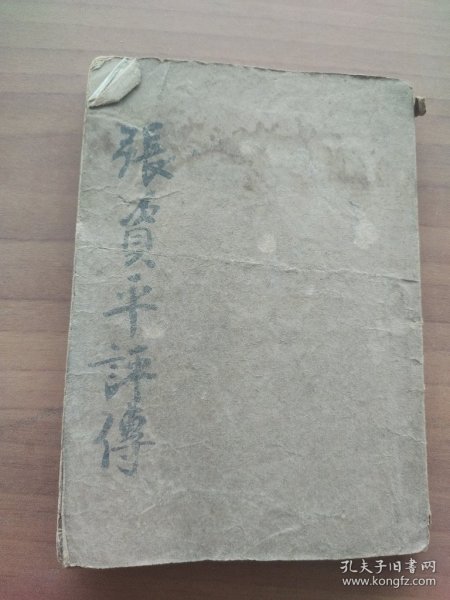 張資平評傳
孔夫子旧书网
www.kongfz.com